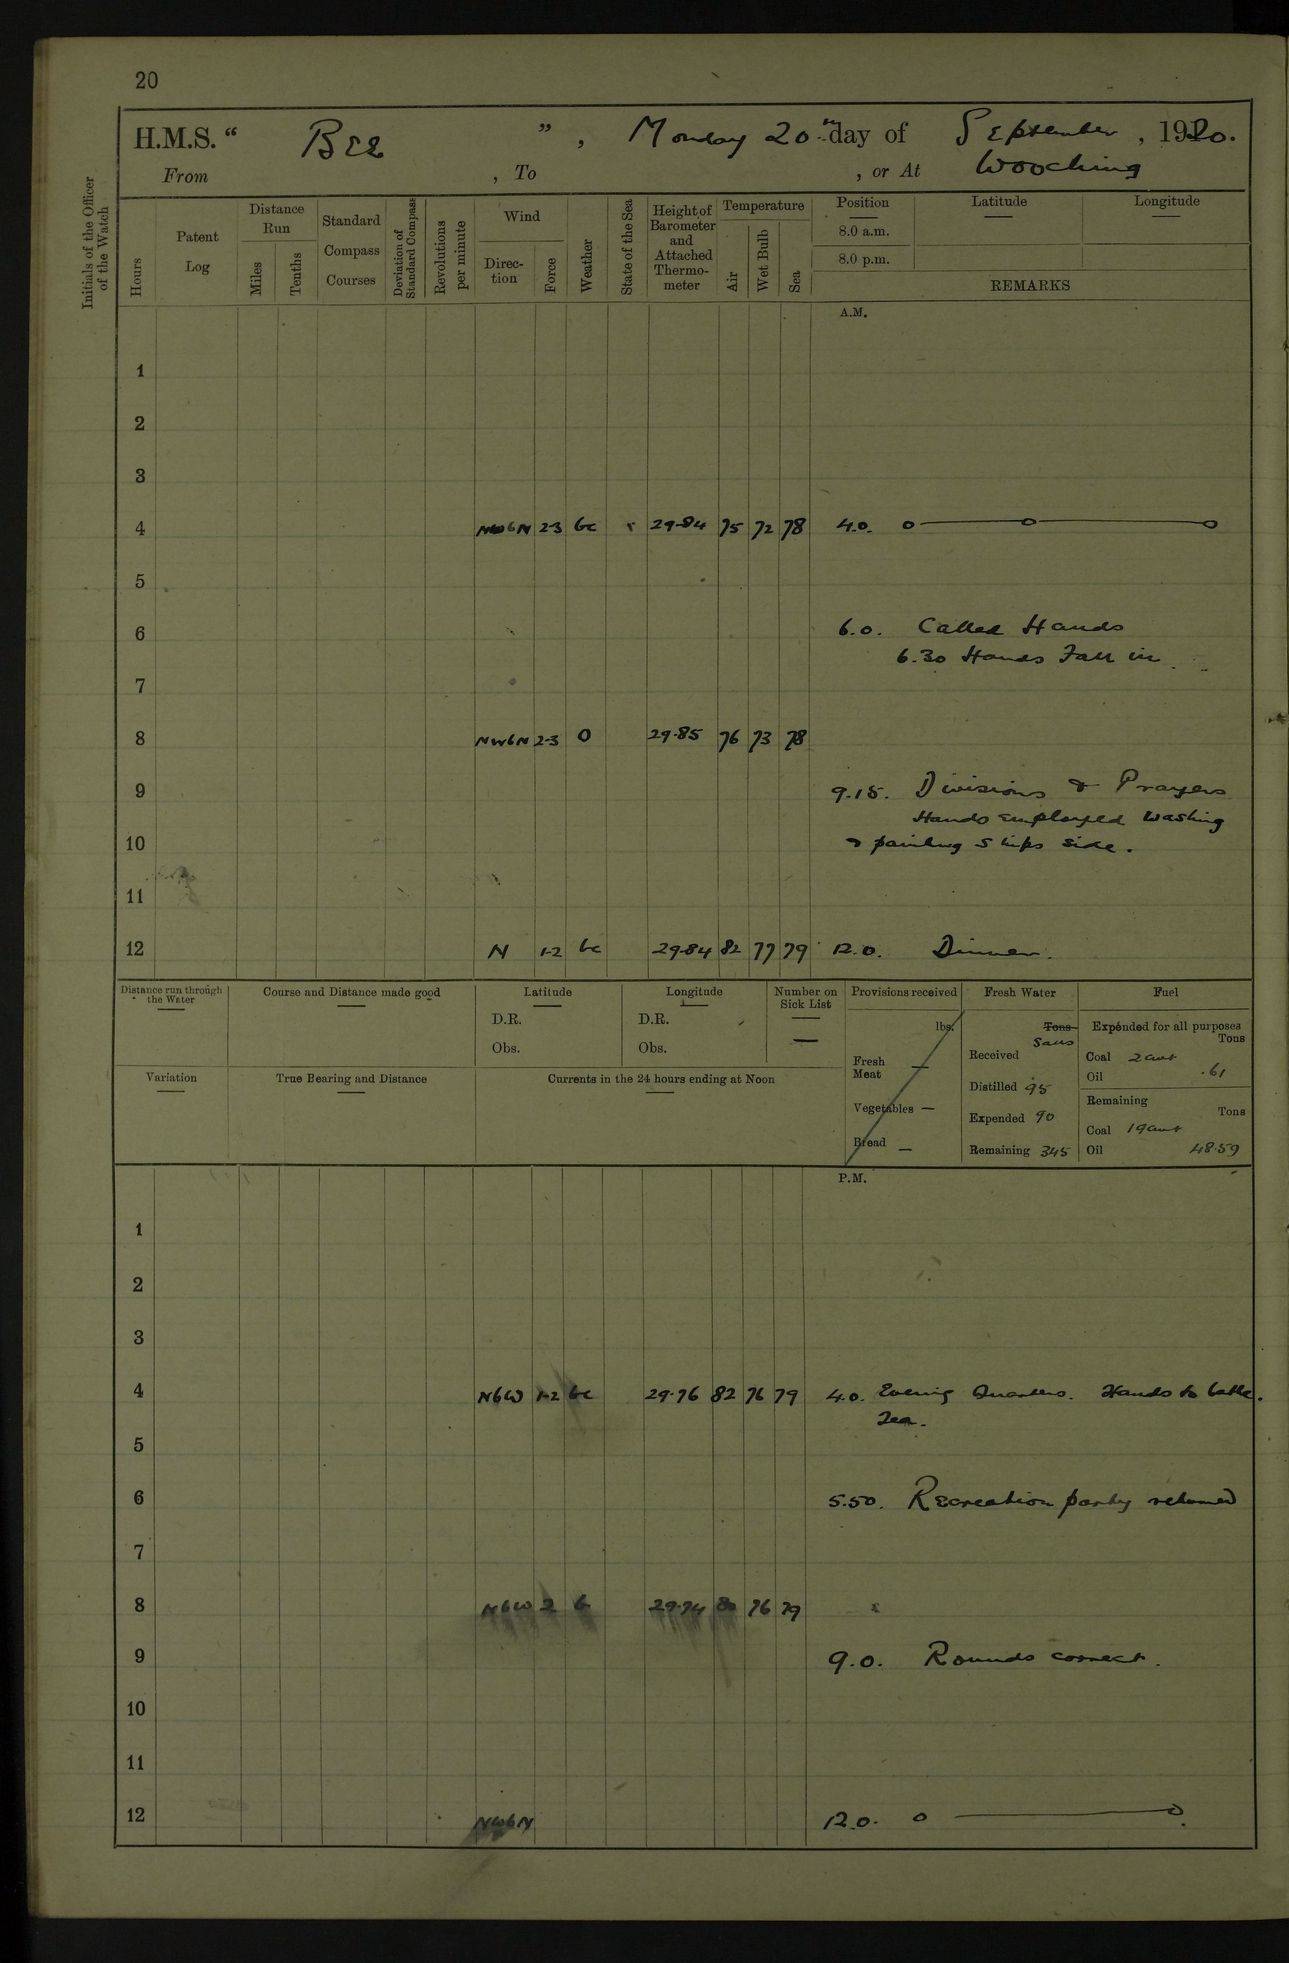 20
H.M.S. “ Bee ”, Monday 20th day of September, 1920.
From , To , or At Wooching
Initials of the Officer of the Watch
Hours
Patent Log
Distance Run
Miles
Tenths
Standard Compass Courses
Deviation of Standard Compass
Revolutions per minute
Wind
Direction
Force
Weather
State of the Sea
Height of Barometer and Attached Thermometer
Temperature
Air
Wet Bulb
Sea
Position
Latitude
Longitude
8.0 a.m.
8.0 p.m.
REMARKS
A.M.
1
2
3
4 NWbN 2-3 bc 29.84 75 72 78 4.0.
5
6 6.0. Called Hands
6.30 Hands Fall in
7
8 NWbN 2-3 O 29.85 76 73 78
9 9.15. Divisions & Prayers
Hands employed washing
10 & painting ships side.
11
12 N 1-2 bc 29.84 82 77 79 12.0. Dinner.
Distance run through the Water
Course and Distance made good
Latitude
D.R.
Obs.
Longitude
D.R.
Obs.
Number on Sick List
—
Provisions received
lbs.
Fresh Meat —
Vegetables —
Bread —
Fresh Water
Tons
Galls
Received
Distilled 95
Expended 90
Remaining 345
Fuel
Expended for all purposes
Tons
Coal 2 cwt
Oil .61
Remaining
Tons
Coal 19 cwt
Oil 48.59
Variation
True Bearing and Distance
Currents in the 24 hours ending at Noon
P.M.
1
2
3
4 NbW 1-2 bc 29.76 82 76 79 4.0. Evening Quarters. Hands to bathe.
Tea.
5
6 5.50. Recreation party returned
7
8 NbW 2 b 29.74 80 76 79
9 9.0. Rounds correct.
10
11
12 NWbN 12.0.